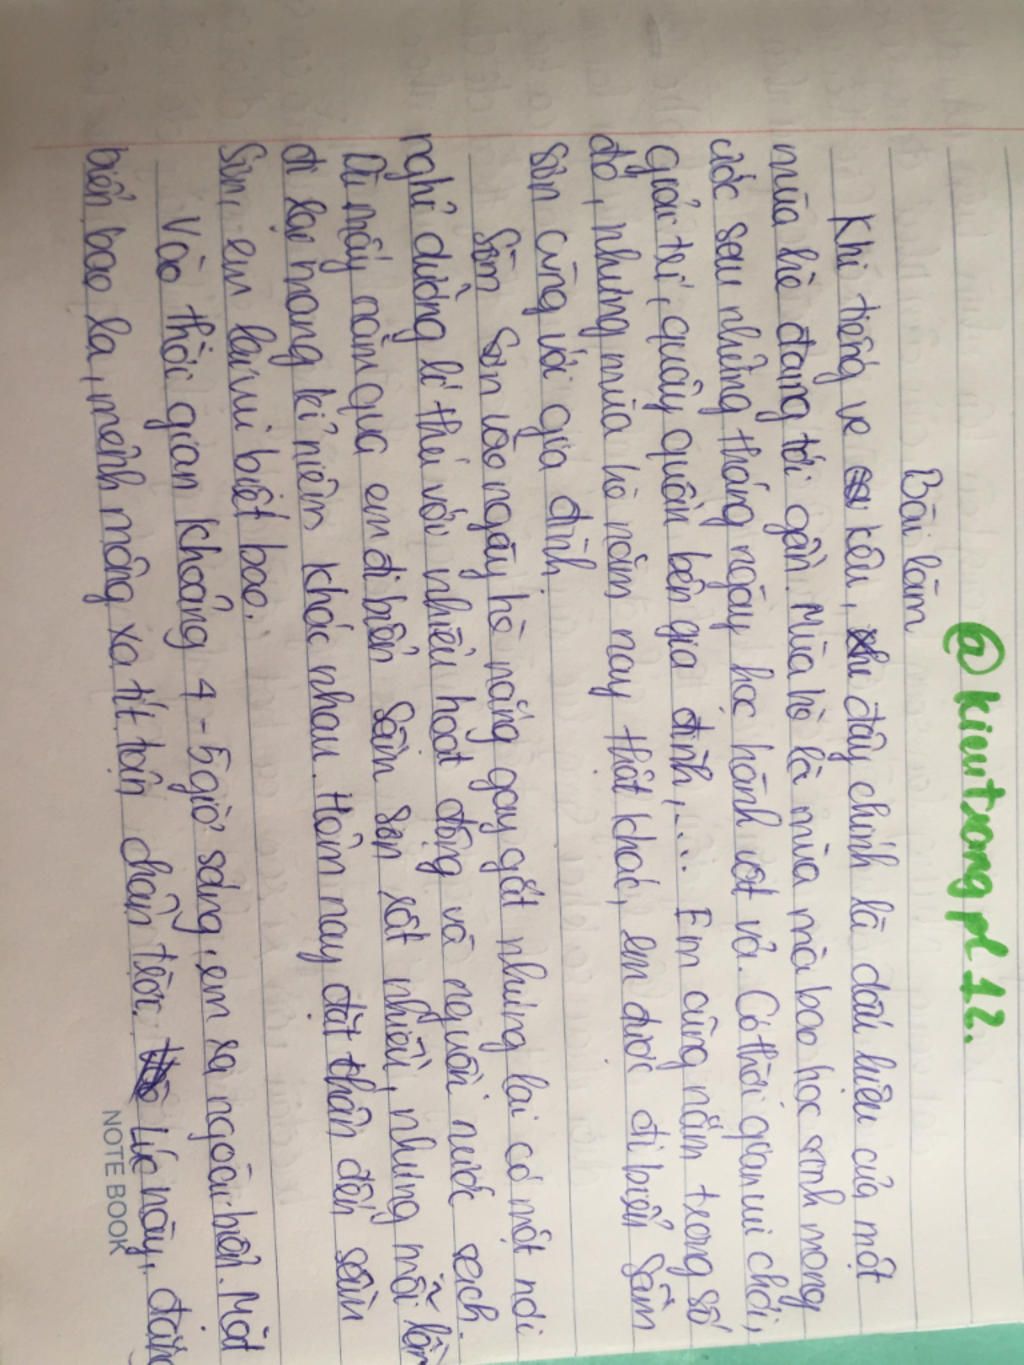 @kieutrangpl12.
Bài làm
Khi tiếng ve kêu, đây chính là dấu hiệu của một
mùa hè đang tới gần. Mùa hè là mùa mà bao học sinh mong
ước sau những tháng ngày học hành vất vả. Có thời gian vui chơi,
giải trí, quây quần bên gia đình,... Em cũng nằm trong số
đó, nhưng mùa hè năm nay thật khác, em được đi biển Sầm
sơn cùng với gia đình.
Sầm Sơn vào ngày hè nắng gay gắt nhưng lại có một nơi
nghỉ dưỡng lí thú với nhiều hoạt động và nguồn nước sạch.
Dù mấy năm qua em đi biển Sầm sơn rất nhiều, nhưng mỗi lần
đi lại mang kỉ niệm khác nhau. Hôm nay đặt chân đến sầm
Sơn, em lại vui biết bao.
Vào thời gian khoảng 4-5 giờ sáng, em ra ngoài biển. Mặt
biển bao la, mênh mông xa tít tận chân trời. Lúc này, đằng
NOTE BOOK